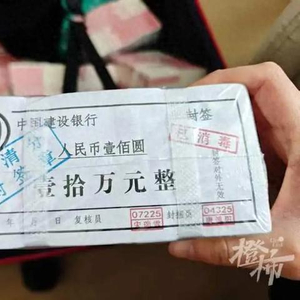 中国建设银行
封签
已消毒
人民币壹佰圆
壹拾万元整
年 月 日 复核员 07225 封捆员 04329
橙柿